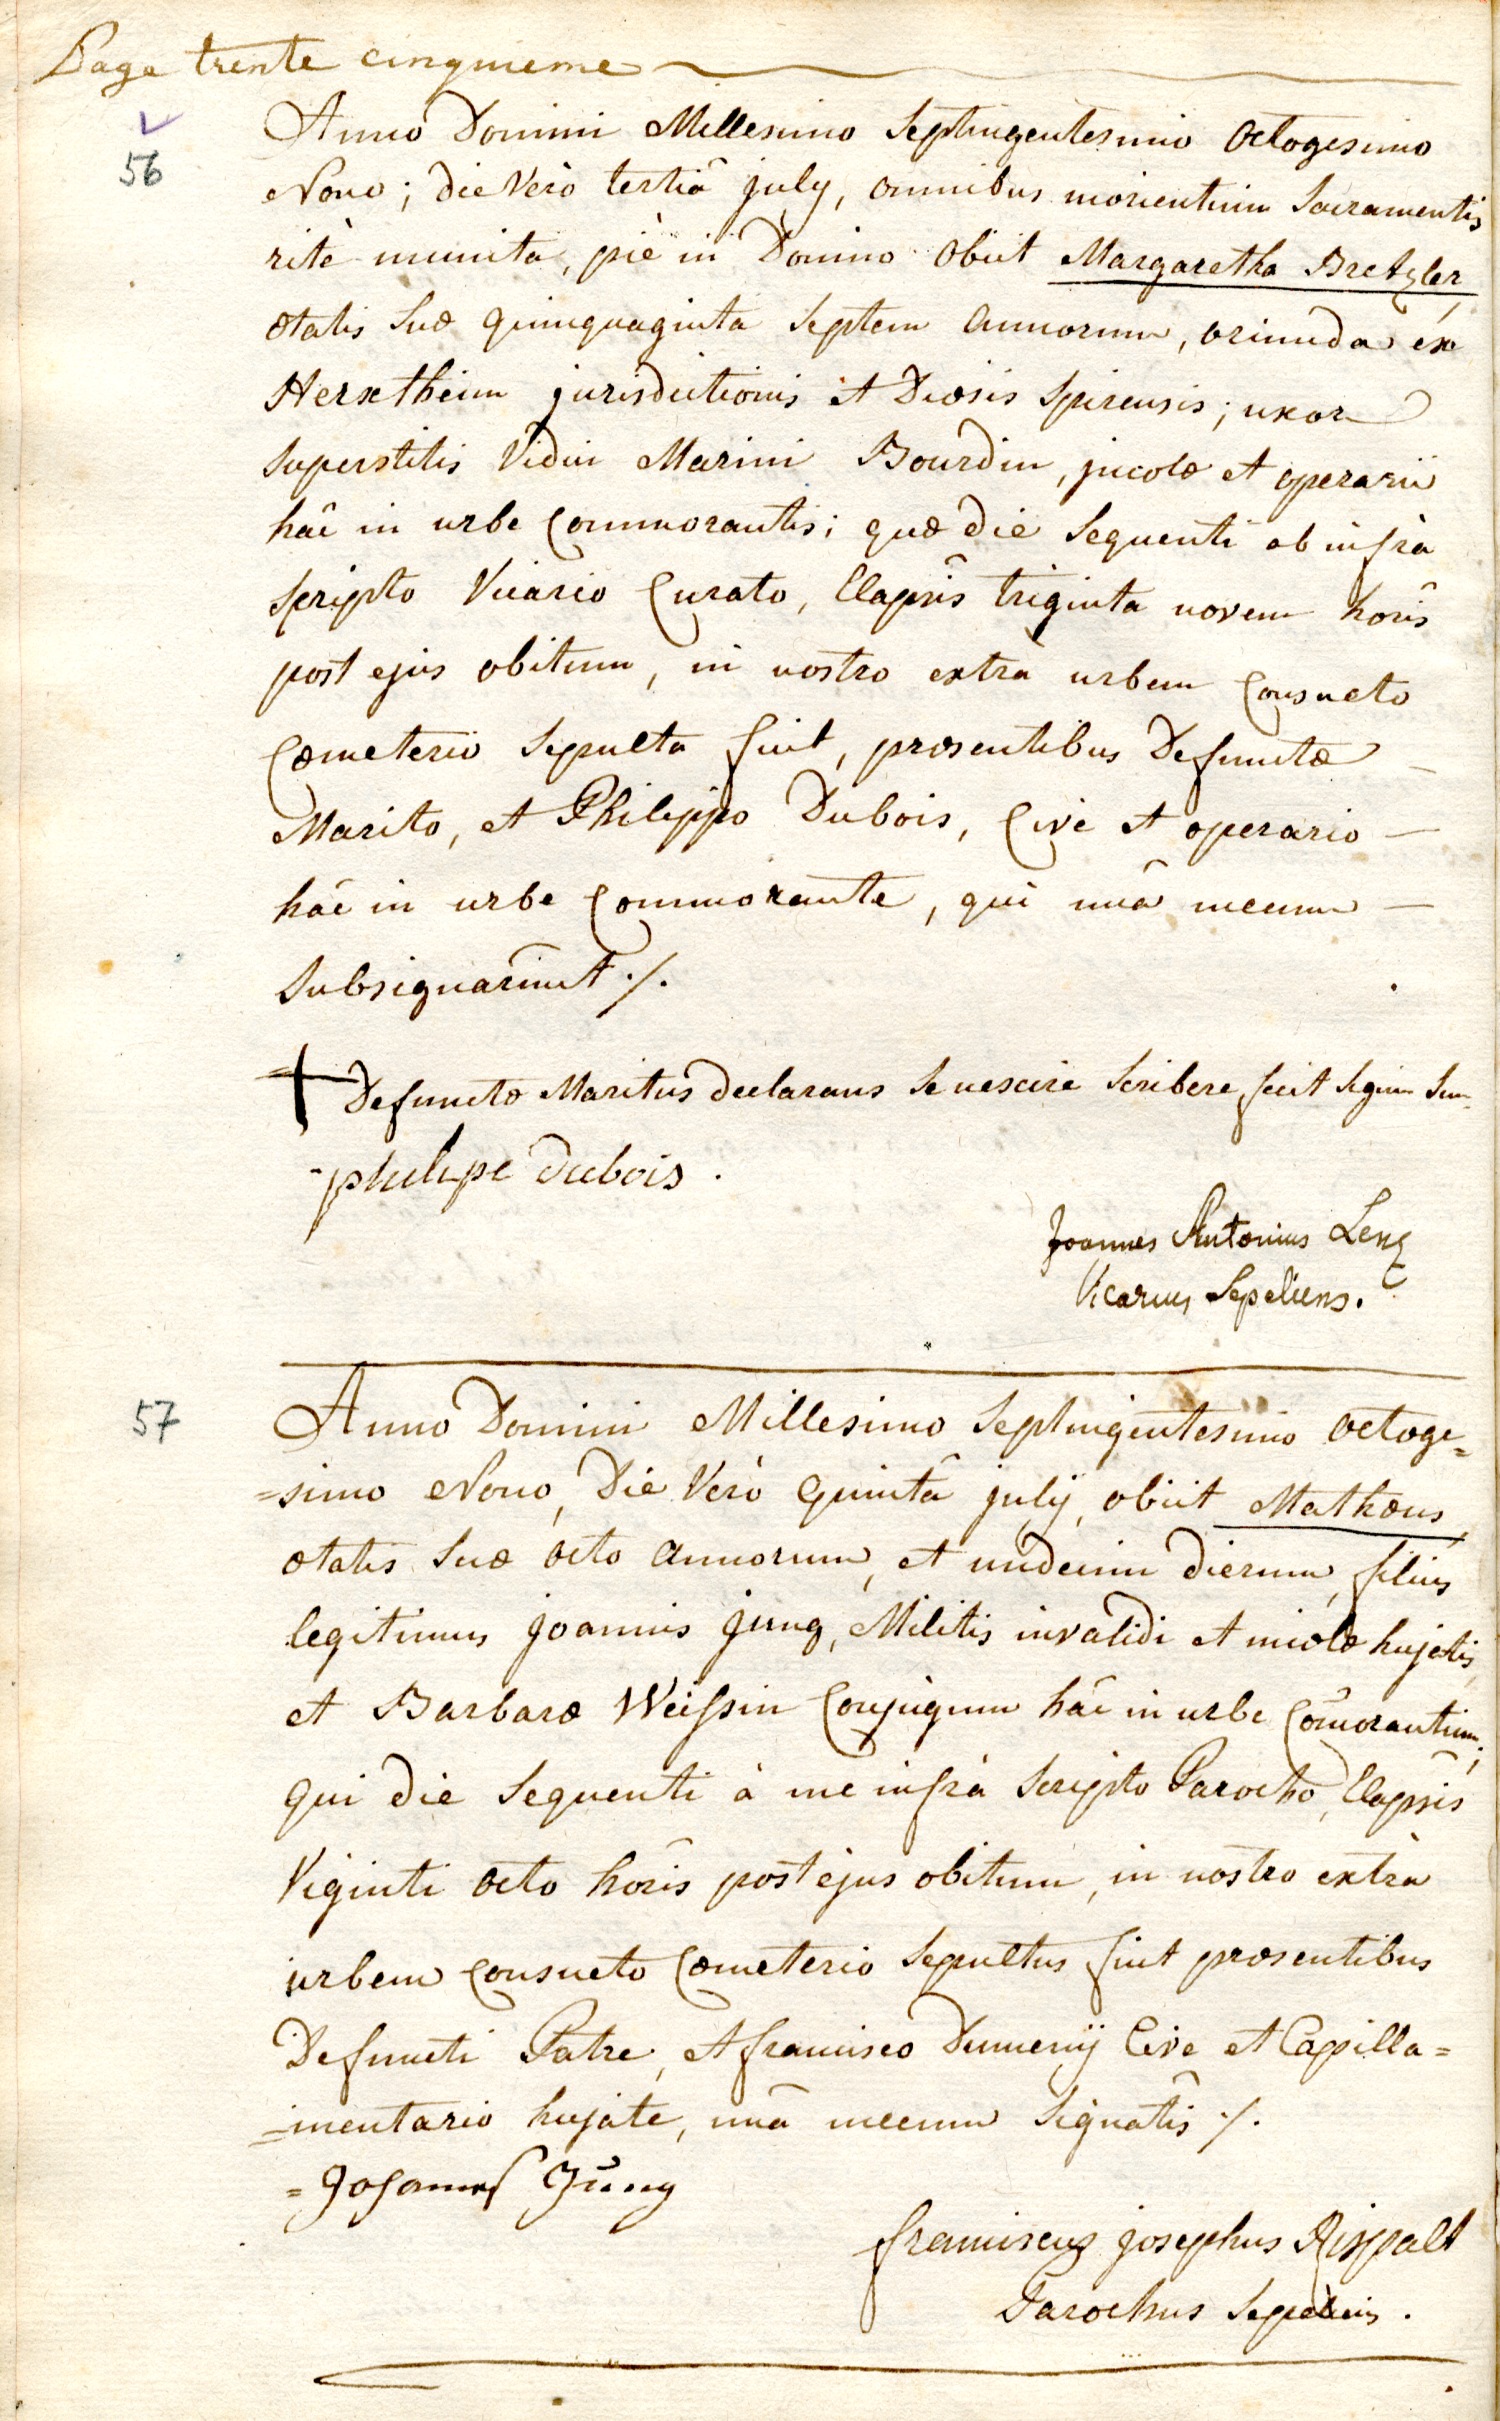 Page trente cinquieme
56
Anno Domini Millesimo Septingentesimo Octogesimo
Nono; die Verò tertiâ july, omnibus morientium Sacramentis
ritè munita, piè in Domino Obiit Margaretha Bretzler
ætatis Suæ quinquaginta Septem Annorum, oriunda ex
Herxtheim jurisdictionis et Diœsis Spirensis; uxor
Superstitis Vidui Marini Bourdin, jncolæ et operarii
hâc in urbe Commorantis; quæ die Sequenti ab infrà
Scripto Vicario Curato, Elapsîs triginta novem horîs
post ejus obitum, in nostro extra urbem Consueto
Cœmeterio Sepulta fuit, præsentibus Defunctæ
Marito, et Philippo Dubois, Cive et operario
hâc in urbe Commorante, qui unâ mecum
Subsignârunt ./.
Defunctæ Maritus declarans Se nescire Scribere fecit Signum Suum
philipe dubois .
Joannes Antonius Lenz
Vicarius Sepeliens.
57
Anno Domini Millesimo Septingentesimo Octoge=
=simo Nono, Die Verò Quintâ july, obiit Mathæus
ætatis Suæ Octo Annorum, et undecim dierum, filius
legitimus joannis jung, Militis invalidi et incolæ hujatis,
et Barbaræ Weissin Conjugum hâc in urbe Com̃orantium;
qui die Sequenti à me infrà Scripto Parocho, Elapsîs
Viginti Octo horîs post ejus obitum, in nostro extrà
urbem Consueto Cœmeterio Sepultus fuit præsentibus
Defuncti Patre, et francisco Dumenÿ Cive et Capilla=
=mentario hujate, unâ mecum Signatîs ./.
= Johannes Jung
franciscus josephus Rispalt
Parochus Sepeliens .